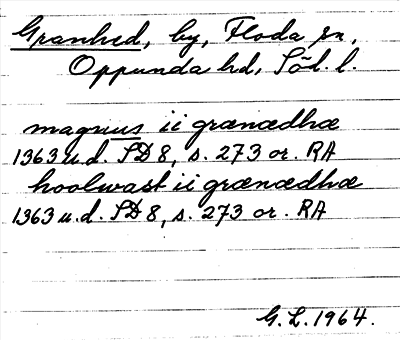 Granhed, by, Floda sn,
Oppunda hd, Söd. l.
magnus ii grænædhæ
1363 u.d. SD 8, s. 273 or. RA
hoolwast ii grænædhæ
1363 u.d. SD 8, s. 273 or. RA
G. L. 1964.